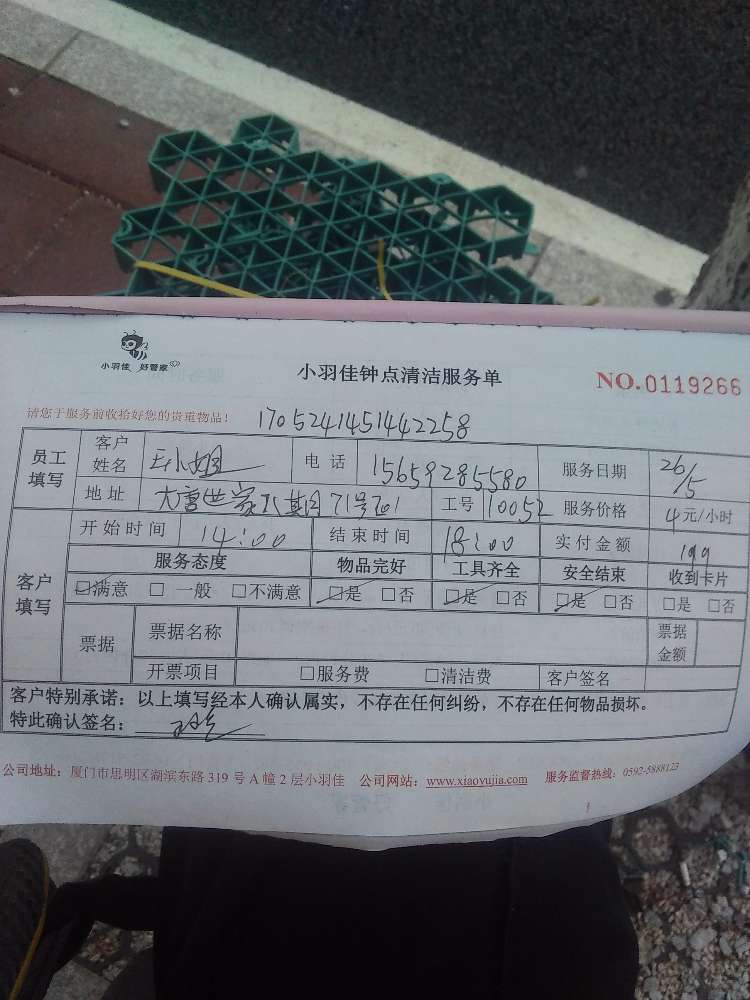 小羽佳 好管家
小羽佳钟点清洁服务单
NO.0119266
请您于服务前收拾好您的贵重物品！
1705241451442258
员工填写 客户姓名 王小姐 电话 15659285580 服务日期 26/5
地址 大唐世家八期71号701 工号 10052 服务价格 4元/小时
客户填写 开始时间 14:00 结束时间 18:00 实付金额 199
服务态度 物品完好 工具齐全 安全结束 收到卡片
☑满意 □一般 □不满意 ☑是 □否 ☑是 □否 ☑是 □否 □是 □否
票据 票据名称 票据金额
开票项目 □服务费 □清洁费 客户签名
客户特别承诺：以上填写经本人确认属实，不存在任何纠纷，不存在任何物品损坏。
特此确认签名：
公司地址：厦门市思明区湖滨东路319号A幢2层小羽佳 公司网站：www.xiaoyujia.com 服务监督热线：0592-5888123